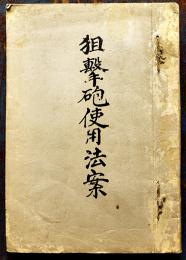 狙撃砲使用法案